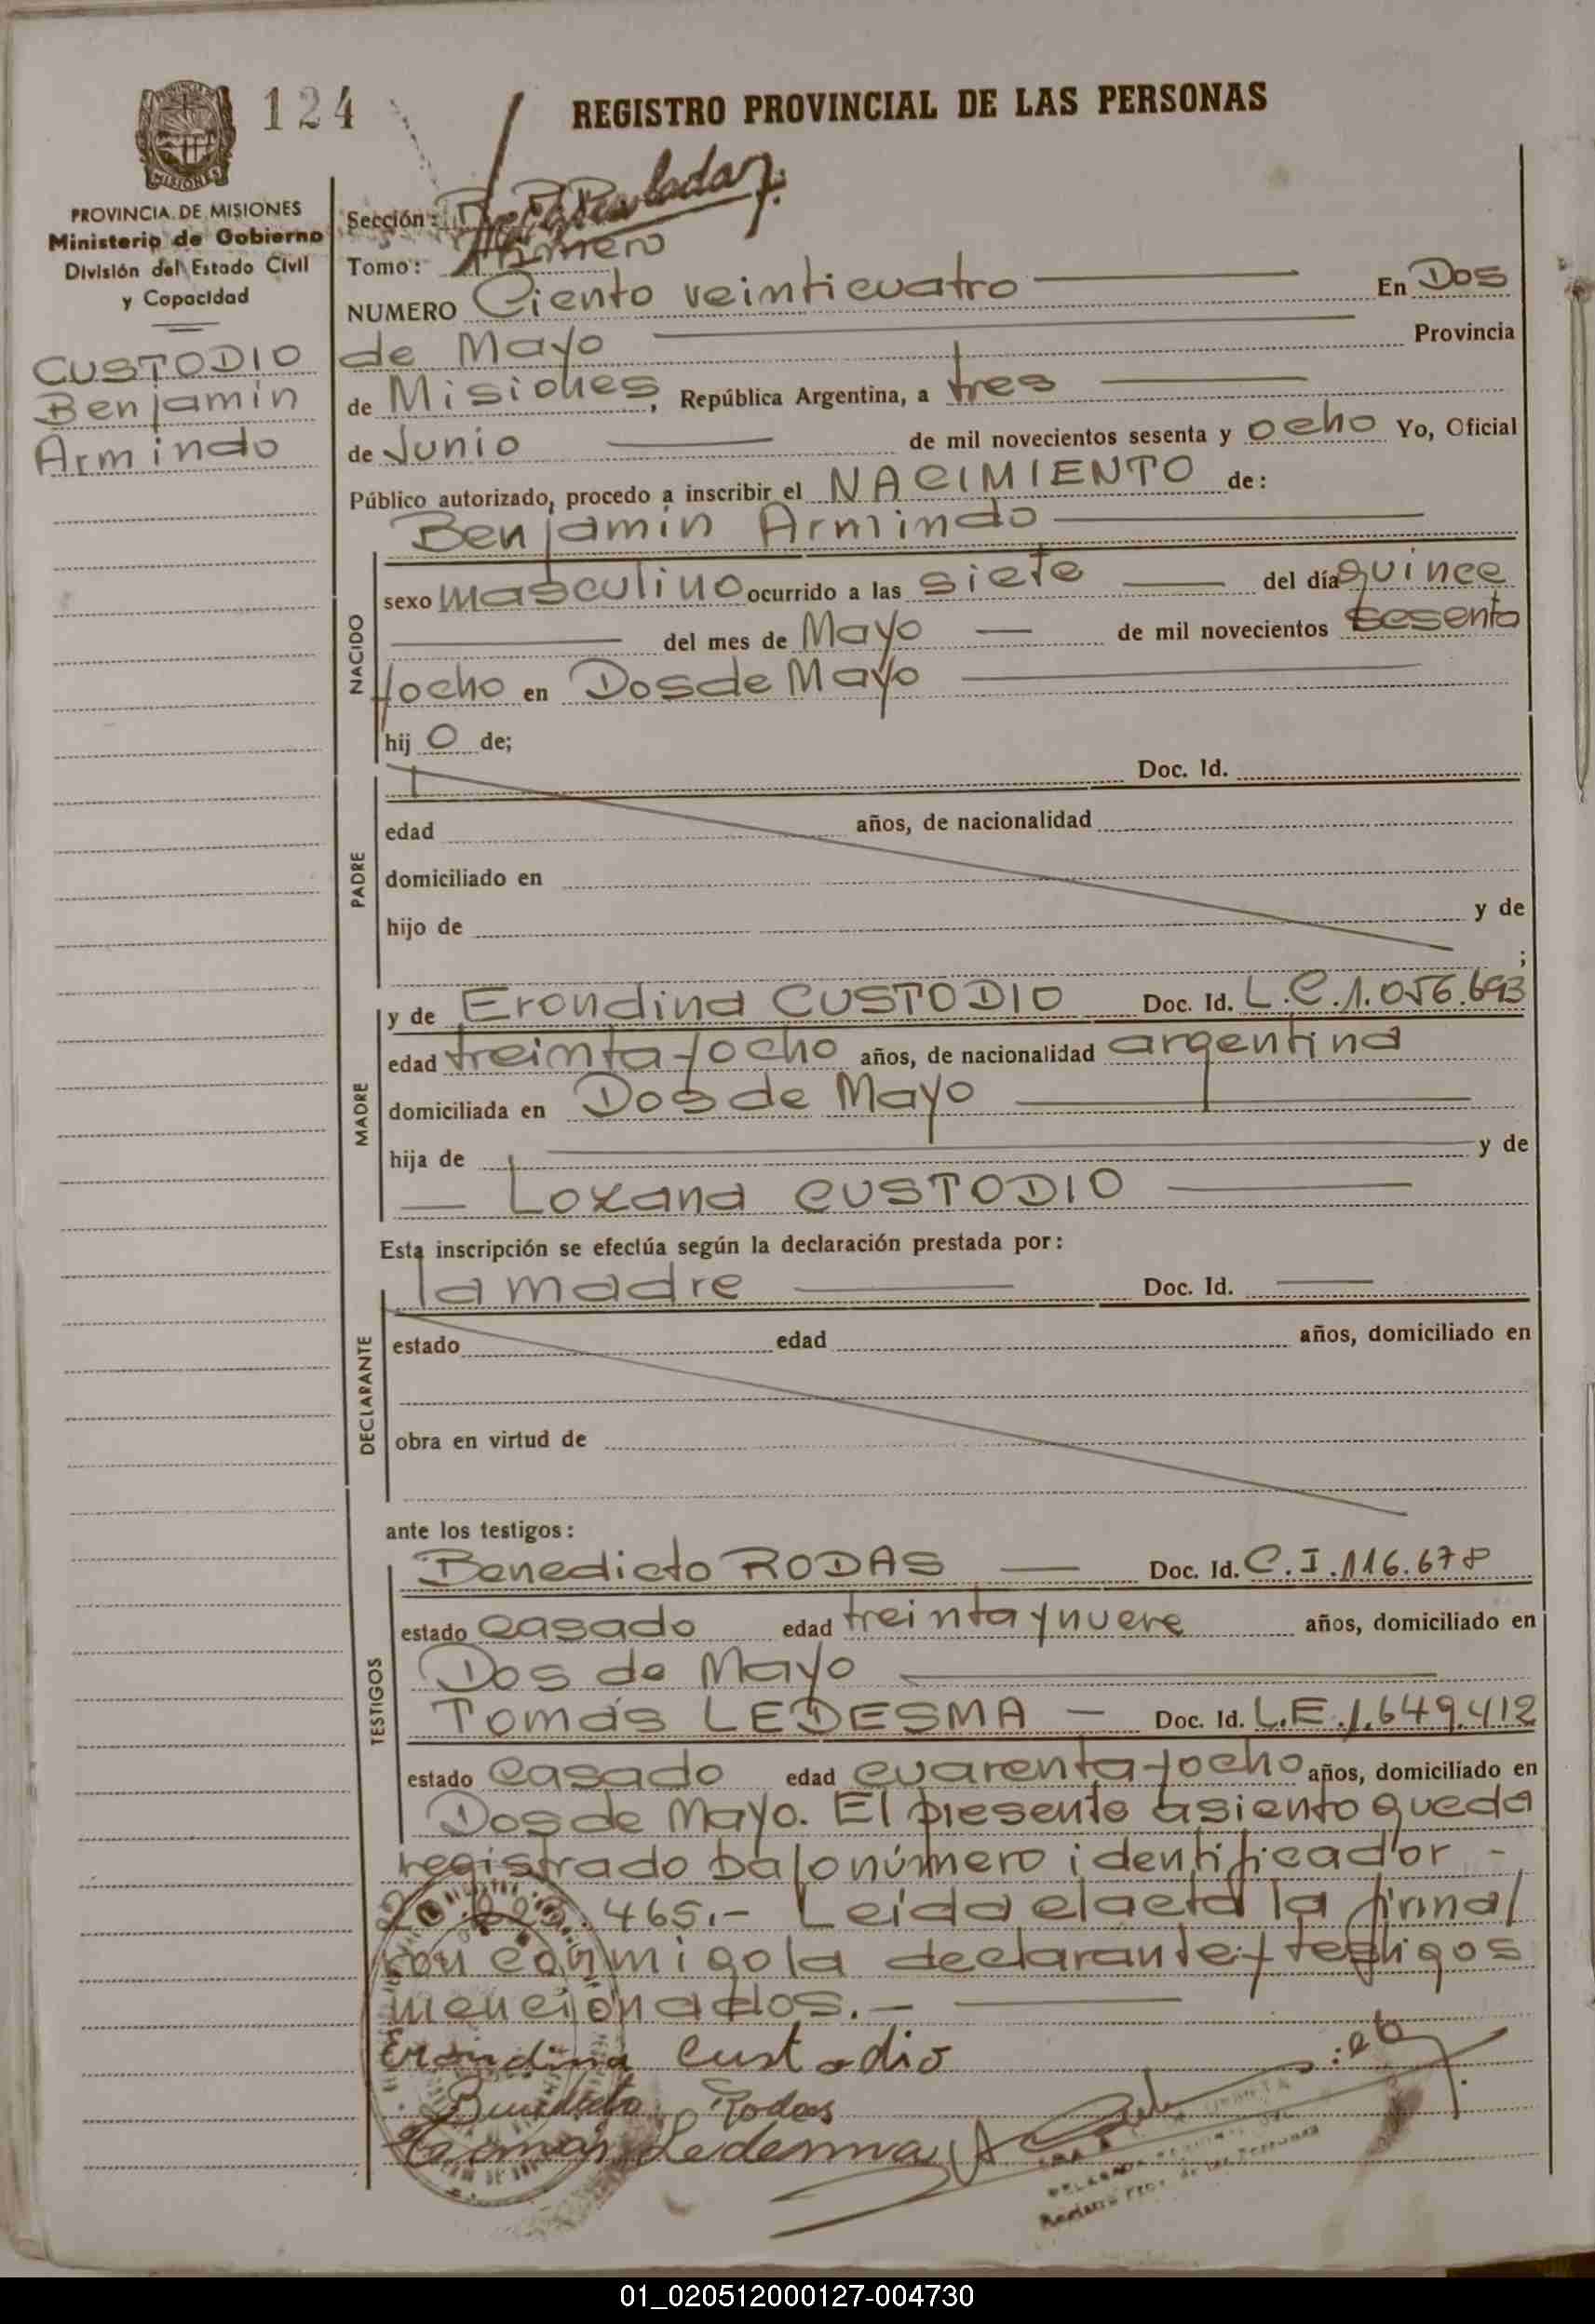 124
REGISTRO PROVINCIAL DE LAS PERSONAS
MISIONES
PROVINCIA DE MISIONES
Ministerio de Gobierno
División del Estado Civil
y Capacidad
CUSTODIO
Benjamin
Armindo
Sección:
Tomo: Primero
NUMERO Ciento veinticuatro En Dos
de Mayo Provincia
de Misiones, República Argentina, a tres
de Junio de mil novecientos sesenta y ocho Yo, Oficial
Público autorizado, procedo a inscribir el NACIMIENTO de:
Benjamin Armindo
NACIDO
sexo masculino ocurrido a las siete del día quince
del mes de Mayo de mil novecientos sesenta
y ocho en Dos de Mayo
hij o de;
PADRE
Doc. Id.
edad años, de nacionalidad
domiciliado en
hijo de y de
;
MADRE
y de Erondina CUSTODIO Doc. Id. L.C.1.056.693
edad treinta y ocho años, de nacionalidad argentina
domiciliada en Dos de Mayo
hija de y de
— Lozana CUSTODIO
Esta inscripción se efectúa según la declaración prestada por:
la madre Doc. Id. —
DECLARANTE
estado edad años, domiciliado en
obra en virtud de
ante los testigos:
TESTIGOS
Benedicto RODAS — Doc. Id. C.I.116.678
estado casado edad treinta y nueve años, domiciliado en
Dos de Mayo
Tomás LEDESMA — Doc. Id. L.E.1.649.412
estado casado edad cuarenta y ocho años, domiciliado en
Dos de Mayo. El presente asiento queda
registrado bajo número identificador -
465.- Leída el acta la firma
ron conmigo la declarante y testigos
mencionados.-
Erondina Custodio
Benedicto Rodas
Tomás Ledesma
01_020512000127-004730